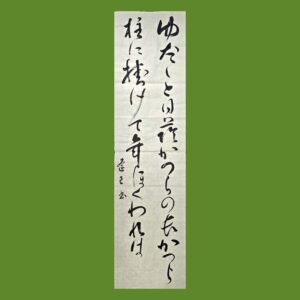 ゆた〱と日蔭かつらの長かつら
柱に掛けて年ほくわれは